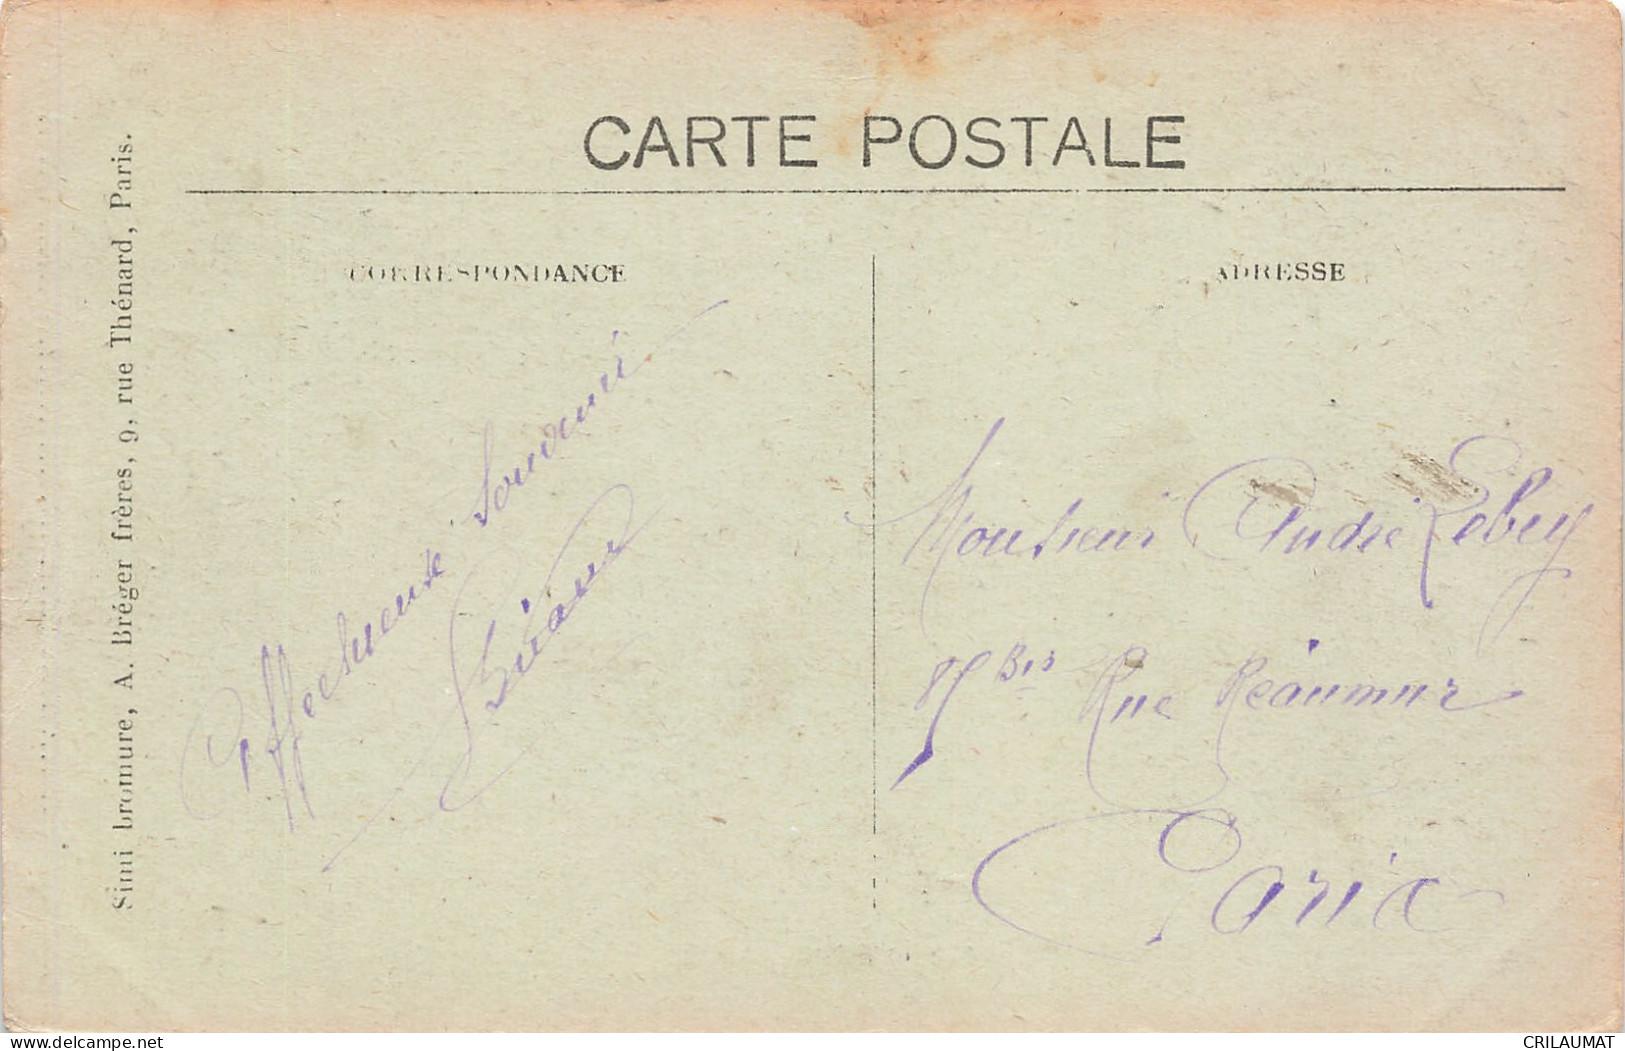 CARTE POSTALE
CORRESPONDANCE
ADRESSE
Simi bromure, A. Bréger frères, 9, rue Thénard, Paris.
Affectueux Souvenir
Monsieur André Lebey
Bis Rue Réaumur
Paris
delcampe.net
CRILAUMAT